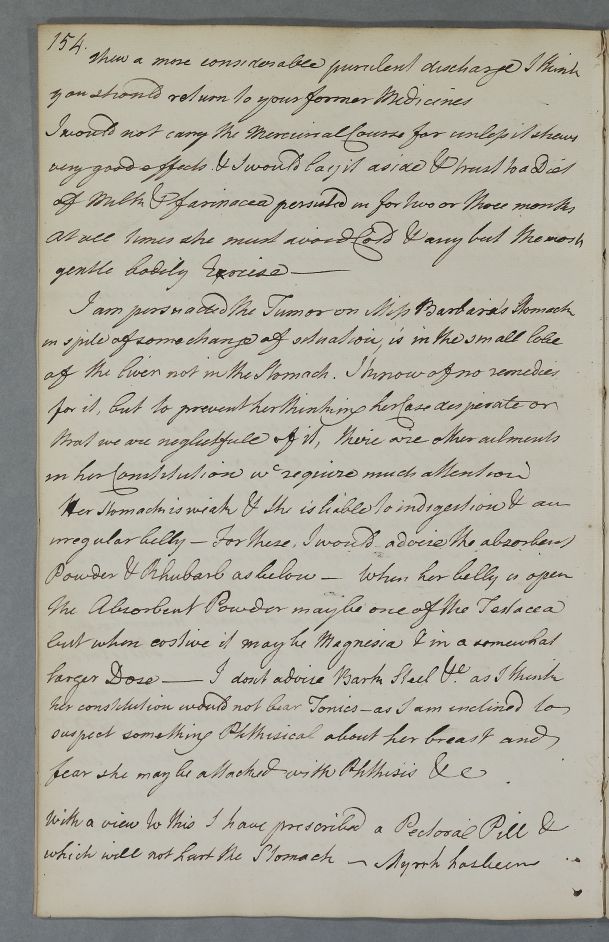 154.
shew a more considerable purulent discharge I think
you should return to your former Medicines
I would not carry the Mercurial Course far unless it shews
very good effects & I would lay it aside & trust to a Diet
of Milk & farinacea persisted in for two or three months
At all times she must avoid Cold & any but the most
gentle bodily Exercise —
I am persuaded the Tumor on Miss Barbara's Stomach
in spite of some change of situation, is in the small lobe
of the liver not in the Stomach. I know of no remedies
for it, but to prevent her thinking her Case desperate or
that we are neglectfull of it, there are other ailments
in her Constitution wc require much attention
Her Stomach is weak & she is liable to indigestion & an
irregular belly — For these, I would advise the absorbent
Powder & Rhubarb as below — When her belly is open
the Absorbent Powder may be one of the Testacea
but when costive it may be Magnesia & in a somewhat
larger Dose — I dont advise Bark Steel &c. as I think
her constitution would not bear Tonics — as I am inclined to
suspect something Phthisical about her breast and
fear she may be attacked with Phthisis &c
With a view to this I have prescribed a Pectoral Pill &
which will not hurt the Stomach — Myrrh has been